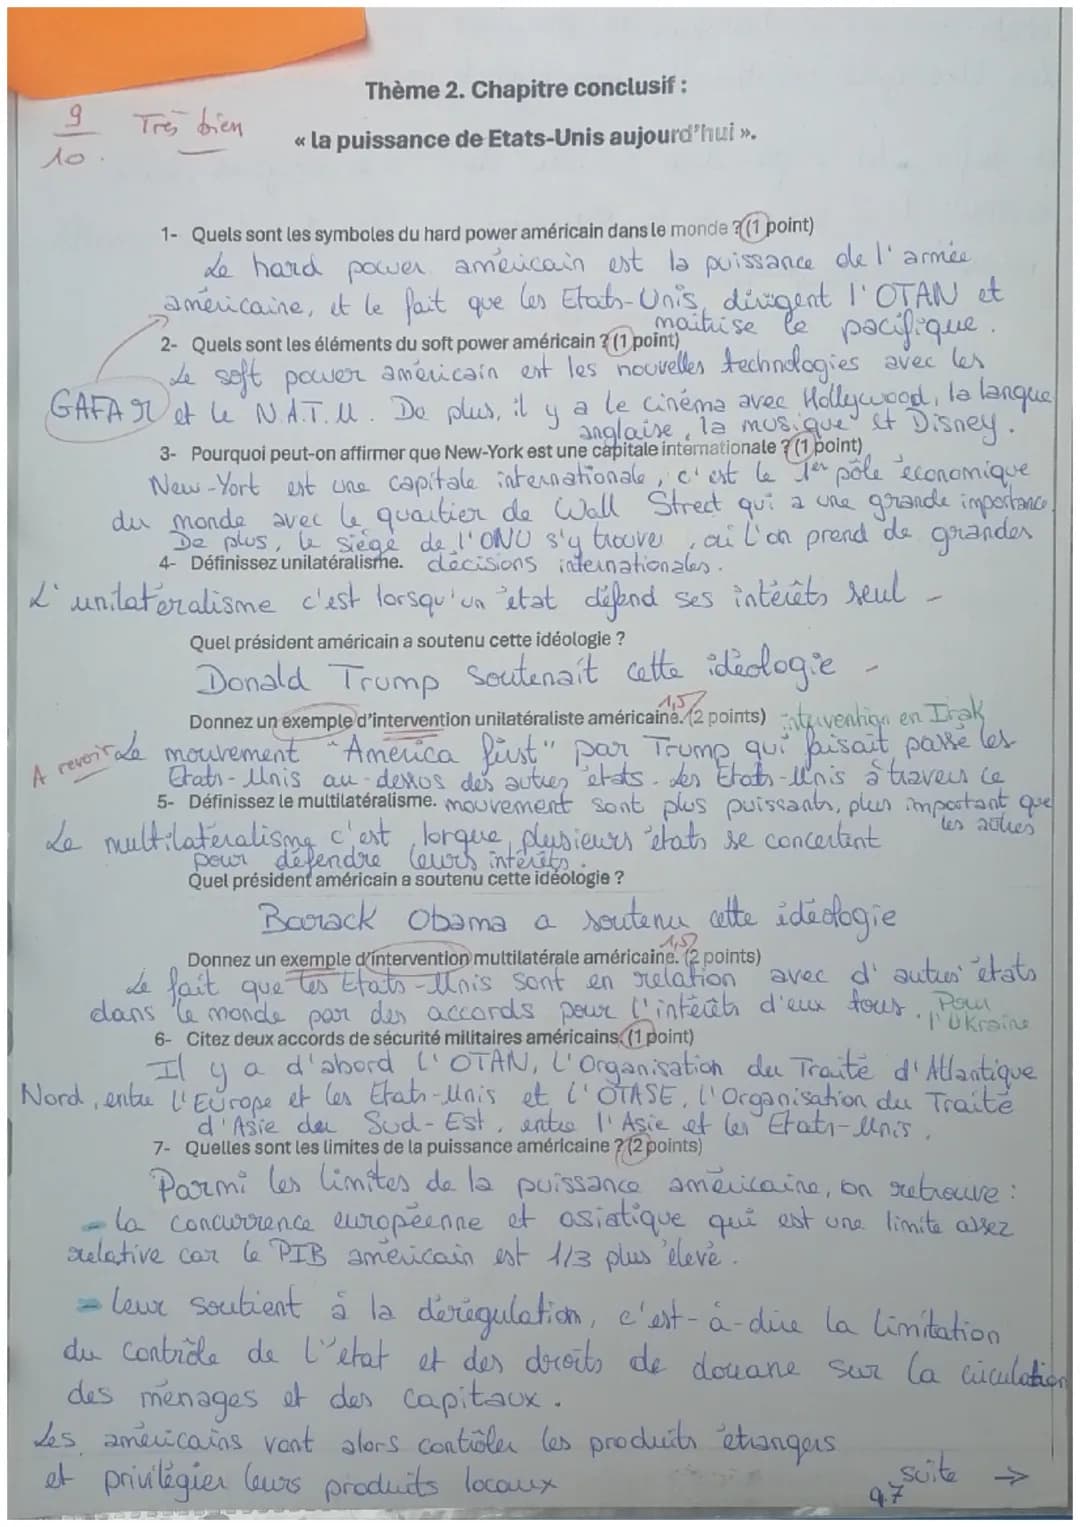 Thème 2. Chapitre conclusif :
9/10. Très bien
« la puissance de Etats-Unis aujourd'hui ».
1- Quels sont les symboles du hard power américain dans le monde ? (1 point)
Le hard power américain est la puissance de l'armée
américaine, et le fait que les Etats-Unis dirigent l'OTAN et
maitrise le pacifique.
2- Quels sont les éléments du soft power américain ? (1 point)
Le soft power américain est les nouvelles technologies avec les
GAFAM et le N.A.T.U. De plus, il y a le cinéma avec Hollywood, la langue
anglaise, la musique et Disney.
3- Pourquoi peut-on affirmer que New-York est une capitale internationale ? (1 point)
New-Yort est une capitale internationale, c'est le 1er pôle économique
du monde avec le quartier de Wall Street qui a une grande importance.
De plus, le siège de l'ONU s'y trouve, où l'on prend de grandes
4- Définissez unilatéralisme. décisions internationales.
L'unilatéralisme c'est lorsqu'un état défend ses intérêts seul
Quel président américain a soutenu cette idéologie ?
Donald Trump soutenait cette idéologie
1,5
Donnez un exemple d'intervention unilatéraliste américaine. (2 points) intervention en Irak
A revoir Le mouvement "America first" par Trump qui faisait passé les
Etats-Unis au-dessus des autres états. Les Etats-Unis à travers ce
5- Définissez le multilatéralisme. mouvement sont plus puissants, plus important que
les autres
Le multilatéralisme c'est lorque plusieurs états se concertent
pour défendre leurs intérêts.
Quel président américain a soutenu cette idéologie ?
Barack Obama a soutenu cette idéologie
1,5
Donnez un exemple d'intervention multilatérale américaine. (2 points)
Le fait que les Etats-Unis sont en relation avec d'autres états
dans le monde par des accords pour l'intérêts d'eux tous. Pour
l'Ukraine
6- Citez deux accords de sécurité militaires américains. (1 point)
Il y a d'abord l'OTAN, l'Organisation du Traité d'Atlantique
Nord, entre l'Europe et les Etats-Unis et l'OTASE, l'Organisation du Traité
d'Asie du Sud-Est, entre l'Asie et les Etats-Unis.
7- Quelles sont les limites de la puissance américaine ? (2 points)
Parmi les limites de la puissance américaine, on retrouve :
- la concurrence européenne et asiatique qui est une limite assez
relative car le PIB américain est 1/3 plus élevé.
- leur soutient à la dérégulation, c'est-à-dire la limitation
du contrôle de l'état et des droits de douane sur la circulation
des ménages et des capitaux.
Les américains vont alors contrôler les produits étrangers
et privilégier leurs produits locaux
suite →